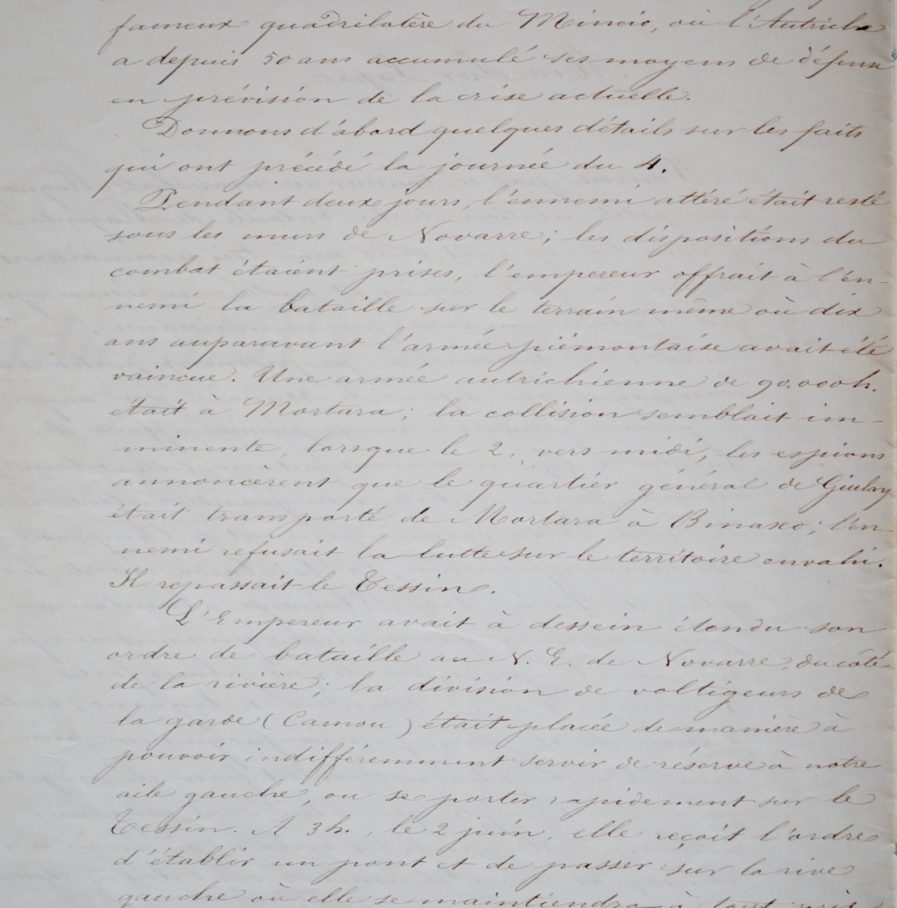 fameux quadrilatère du Mincio, où l'Autriche
a depuis 50 ans accumulé ses moyens de défense
en prévision de la crise actuelle.
Donnons d'abord quelques détails sur les faits
qui ont précédé la journée du 4.
Pendant deux jours, l'ennemi attéré était resté
sous les murs de Novarre; les dispositions du
combat étaient prises, l'empereur offrait à l'en-
nemi la bataille sur le terrain même où dix
ans auparavant l'armée piémontaise avait été
vaincue. Une armée autrichienne de 90.000 h.
était à Mortara; la collision semblait im-
minente, lorsque le 2, vers midi, les espions
annoncèrent que le quartier général de Giulay
était transporté de Mortara à Binasco; l'en-
nemi refusait la lutte sur le territoire envahi.
Il repassait le Tessin.
L'Empereur avait à dessein étendu son
ordre de bataille au N. E. de Novarre, du côté
de la rivière; la division de voltigeurs de
la garde (Camou) était placée de manière à
pouvoir indifféremment servir de réserve à notre
aile gauche, ou se porter rapidement sur le
Tessin. A 3 h., le 2 juin, elle reçoit l'ordre
d'établir un pont et de passer sur la rive
gauche où elle se maintiendra à tout prix